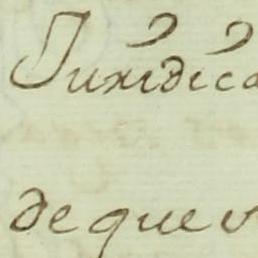 Juridica
de que v